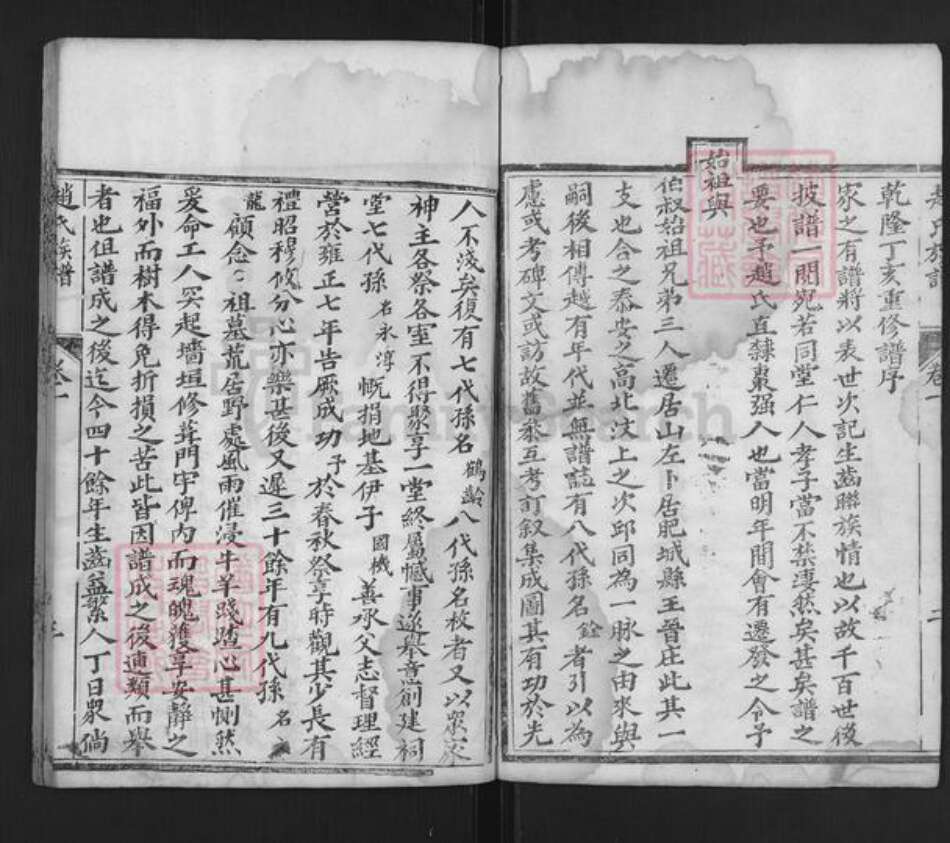 趙氏族譜 卷一
乾隆丁亥重修譜序
家之有譜將以表世次記生齒聯族情也以故千百世後
披譜一閱宛若同堂仁人孝子當不禁悽然矣甚矣譜之
要也予趙氏直隸棗强人也當明年間會有遷發之令予
始祖與
伯叔始祖兄弟三人遷居山左卜居肥城縣王晉庄此其一
支也合之泰安之高北汶上之次邱同為一脉之由來與
嗣後相傳越有年代並無譜誌有八代孫名銓者引以為
慮或考碑文或訪故舊叅互考訂叙集成圖其有功於先
人不淺矣復有七代孫名鶴齡八代孫名枚者又以眾家
神主各祭各室不得聚享一堂終屬憾事遂舉意創建祠
堂七代孫名永淳慨捐地基伊子國機善承父志督理經
營於雍正七年告厥成功予於春秋祭享時觀其少長有
禮昭穆攸分心亦樂甚後又遲三十餘年有九代孫名
龍顧念祖墓荒居野處風雨催浸牛羊踐踏心甚惻然
爰命工人突起墻垣修葺門牢俾内而魂魄獲享安靜之
福外而樹木得免折損之苦此皆因譜成之後連類而舉
者也但譜成之後迄今四十餘年生齒益繁人丁日衆倘
趙氏族譜 卷一
FamilySearch